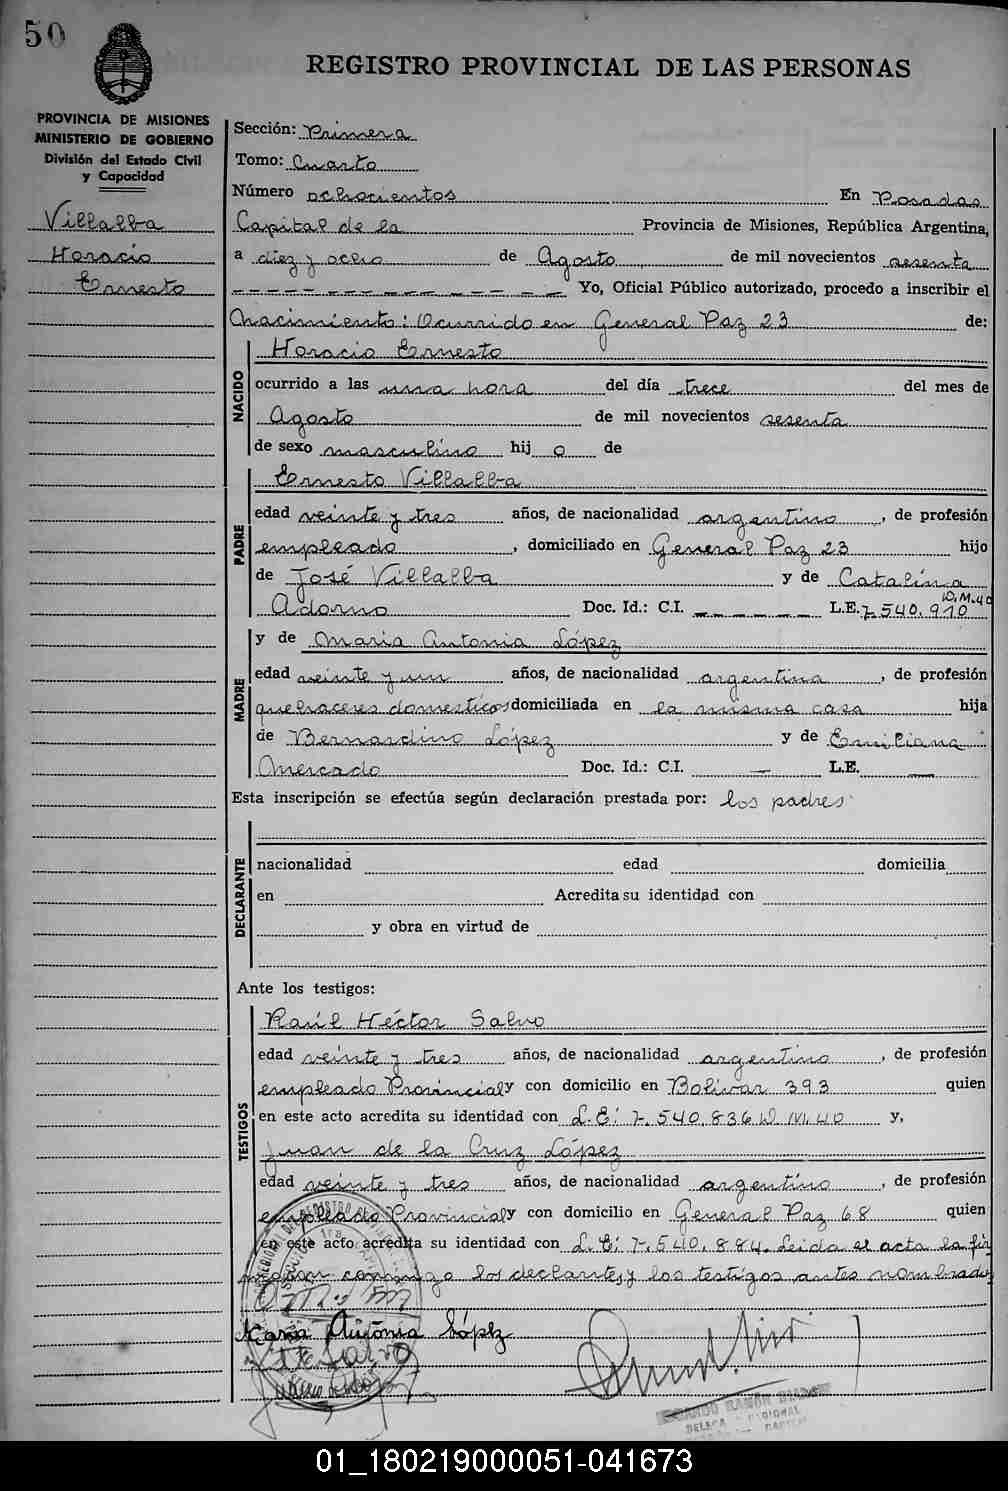 50
REGISTRO PROVINCIAL DE LAS PERSONAS
PROVINCIA DE MISIONES
MINISTERIO DE GOBIERNO
División del Estado Civil
y Capacidad
Villalba
Horacio
Ernesto
Sección: Primera
Tomo: Cuarto
Número ochocientos En Posadas
Capital de la Provincia de Misiones, República Argentina,
a diez y ocho de Agosto de mil novecientos sesenta
Yo, Oficial Público autorizado, procedo a inscribir el
Nacimiento: Ocurrido en General Paz 23 de:
NACIDO
Horacio Ernesto
ocurrido a las una hora del día trece del mes de
Agosto de mil novecientos sesenta
de sexo masculino hij o de
PADRE
Ernesto Villalba
edad veinte y tres años, de nacionalidad argentino, de profesión
empleado, domiciliado en General Paz 23 hijo
de José Villalba y de Catalina
Adorno Doc. Id.: C.I. — L.E. 7.540.910 D.M.40
MADRE
y de Maria Antonia López
edad veinte y un años, de nacionalidad argentina, de profesión
quehaceres domesticos domiciliada en la misma casa hija
de Bernardino López y de Emiliana
Mercado Doc. Id.: C.I. — L.E. —
Esta inscripción se efectúa según declaración prestada por: los padres
DECLARANTE
nacionalidad edad domicilia
en Acredita su identidad con
y obra en virtud de
Ante los testigos:
TESTIGOS
Raúl Héctor Salvo
edad veinte y tres años, de nacionalidad argentino, de profesión
empleado Provincial y con domicilio en Bolivar 393 quien
en este acto acredita su identidad con L.E: 7.540.836 D.M.40 y,
Juan de la Cruz López
edad veinte y tres años, de nacionalidad argentino, de profesión
empleado Provincial y con domicilio en General Paz 68 quien
en este acto acredita su identidad con L.E: 7.540.884. Leida el acta la fir
conmigo los declarantes y los testigos antes nombrados
Maria Antonia López
RAMÓN
01_180219000051-041673